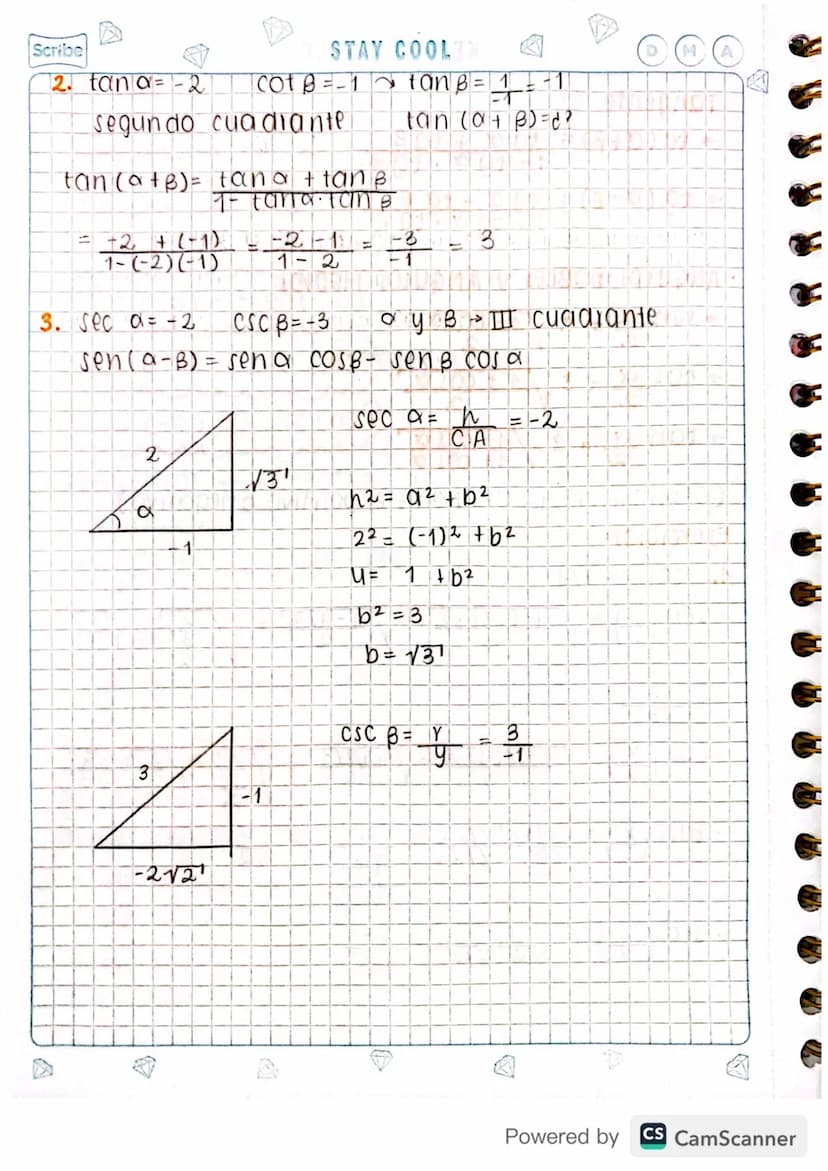 Scribe
STAY COOL
D M A
2. tan α = -2 cot β = -1 → tan β = 1/-1 = -1
segundo cuadrante tan (α + β) = ¿?
tan (α + β) = tan α + tan β / 1 - tan α · tan β
= -2 + (-1) / 1 - (-2)(-1) = -2 - 1 / 1 - 2 = -3 / -1 = 3
3. sec α = -2 csc β = -3 α y β → III cuadrante
sen (α - β) = sen α cos β - sen β cos α
sec α = h / CA = -2
2
√3
α
-1
h² = a² + b²
2² = (-1)² + b²
4 = 1 + b²
b² = 3
b = √3
csc β = r / y = 3 / -1
3
-1
-2√2
Powered by CS CamScanner